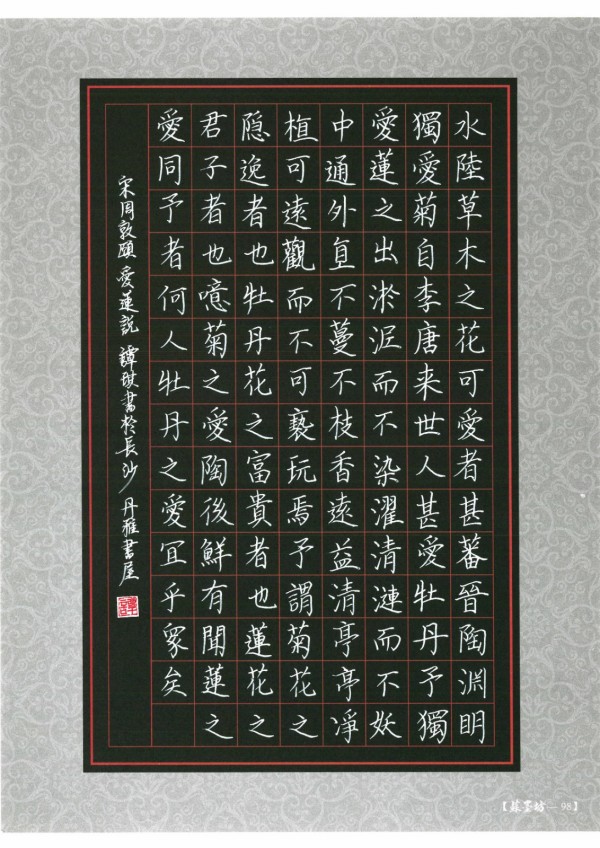 水陸草木之花可愛者甚蕃晉陶淵明
獨愛菊自李唐来世人甚愛牡丹予獨
愛蓮之出淤泥而不染濯清漣而不妖
中通外直不蔓不枝香遠益清亭亭淨
植可遠觀而不可褻玩焉予謂菊花之
隐逸者也牡丹花之富貴者也蓮花之
君子者也噫菊之愛陶後鮮有聞蓮之
愛同予者何人牡丹之愛宜乎眾矣
宋周敦頤愛蓮説 譚琪書於長沙丹雅書屋
【蘇墨坊—98】